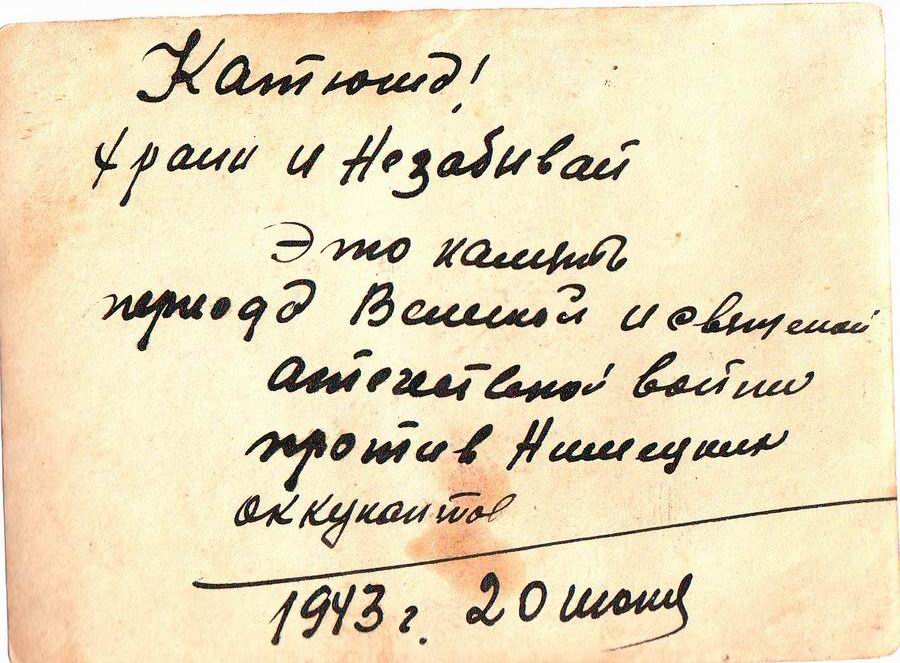 Катюша!
Храни и Незабивай
Это память
периода Великой и священой
атечественой войни
против Нимецких
оккупантов
1943 г. 20 июня